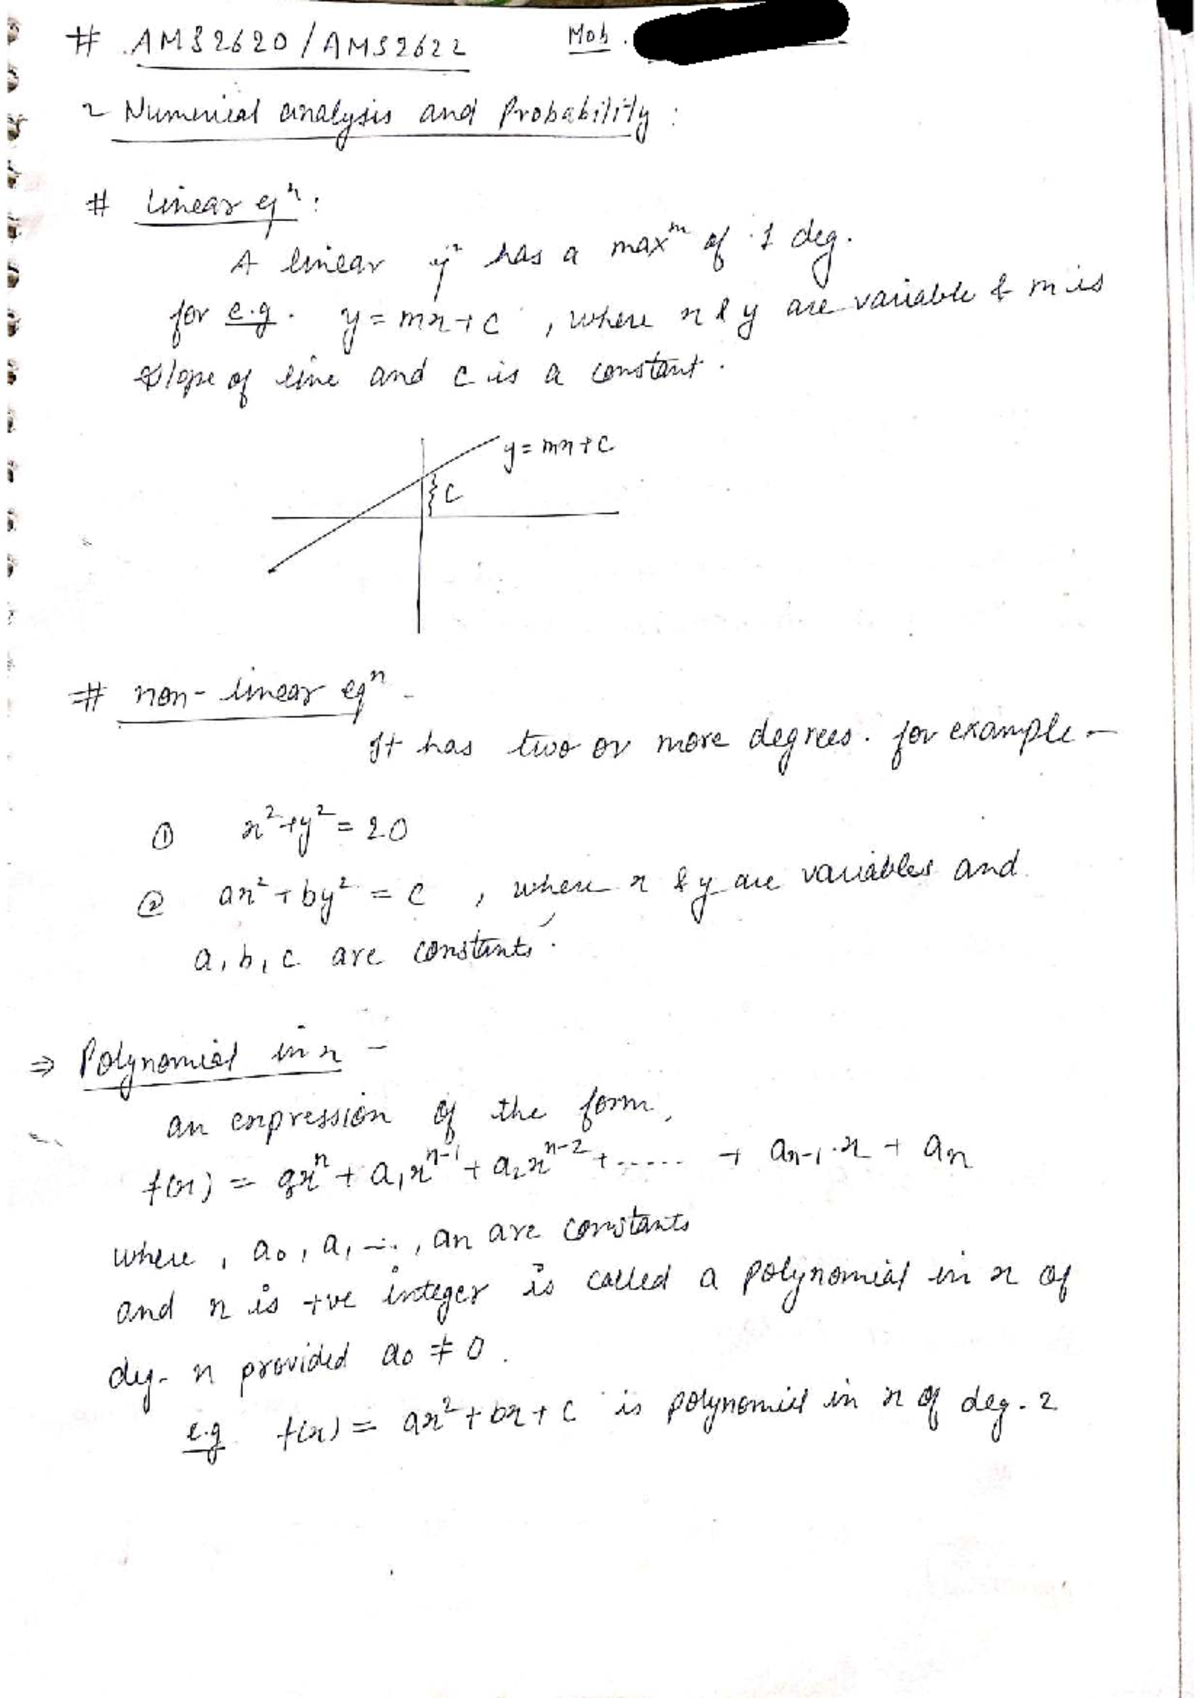 # AMS2620/AMS2622 Mob.
Numerical analysis and Probability:
# Linear eqⁿ:
A linear eqⁿ has a maxᵐ of 1 deg.
for e.g. y = mx + c , where x & y are variable & m is
slope of line and c is a constant.
y = mx + c
c
# non-linear eqⁿ -
It has two or more degrees. for example -
① x² + y² = 20
② ax² + by² = c , where x & y are variables and
a, b, c are constants.
⇒ Polynomial in x -
an expression of the form,
f(x) = a₀xⁿ + a₁xⁿ⁻¹ + a₂xⁿ⁻² + ...... + aₙ₋₁.x + aₙ
where , a₀, a₁ ..., aₙ are constants
and n is +ve integer is called a polynomial in x of
deg. n provided a₀ ≠ 0.
e.g. f(x) = ax² + bx + c is polynomial in x of deg. 2